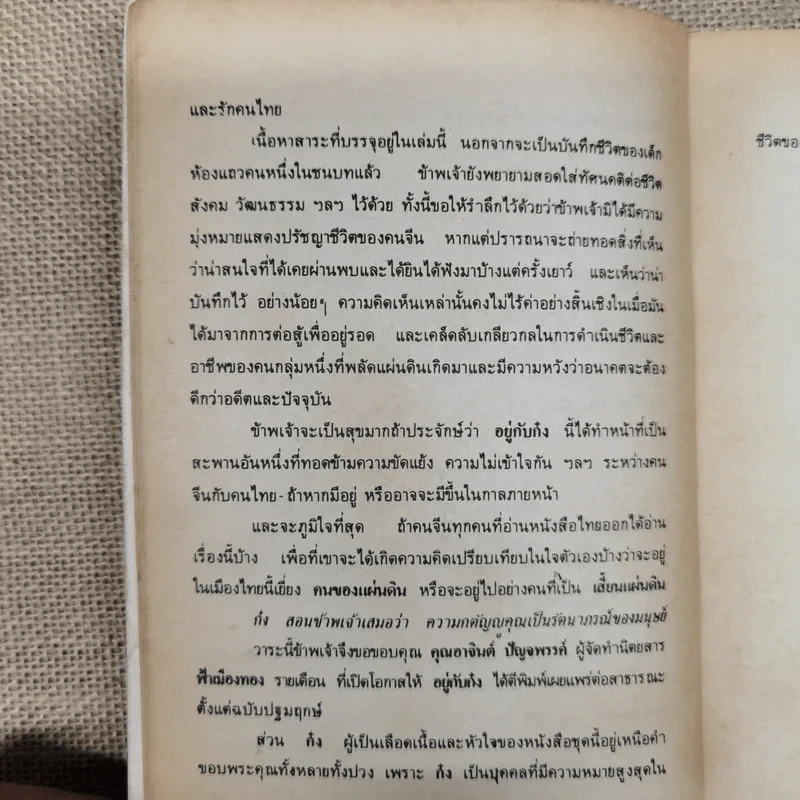 และรักคนไทย
เนื้อหาสาระที่บรรจุอยู่ในเล่มนี้ นอกจากจะเป็นบันทึกชีวิตของเด็ก
ห้องแถวคนหนึ่งในชนบทแล้ว ข้าพเจ้ายังพยายามสอดใส่ทัศนคติต่อชีวิต
สังคม วัฒนธรรม ฯลฯ ไว้ด้วย ทั้งนี้ขอให้รำลึกไว้ด้วยว่าข้าพเจ้ามิได้มีความ
มุ่งหมายแสดงปรัชญาชีวิตของคนจีน หากแต่ปรารถนาจะถ่ายทอดสิ่งที่เห็น
ว่าน่าสนใจที่ได้เคยผ่านพบและได้ยินได้ฟังมาบ้างแต่ครั้งเยาว์ และเห็นว่าน่า
บันทึกไว้ อย่างน้อยๆ ความคิดเห็นเหล่านั้นคงไม่ไร้ค่าอย่างสิ้นเชิงในเมื่อมัน
ได้มาจากการต่อสู้เพื่ออยู่รอด และเคล็ดลับเกลียวกลในการดำเนินชีวิตและ
อาชีพของคนกลุ่มหนึ่งที่พลัดแผ่นดินเกิดมาและมีความหวังว่าอนาคตจะต้อง
ดีกว่าอดีตและปัจจุบัน
ข้าพเจ้าจะเป็นสุขมากถ้าประจักษ์ว่า อยู่กับก๋ง นี้ได้ทำหน้าที่เป็น
สะพานอันหนึ่งที่ทอดข้ามความขัดแย้ง ความไม่เข้าใจกัน ฯลฯ ระหว่างคน
จีนกับคนไทย - ถ้าหากมีอยู่ หรืออาจจะมีขึ้นในกาลภายหน้า
และจะภูมิใจที่สุด ถ้าคนจีนทุกคนที่อ่านหนังสือไทยออกได้อ่าน
เรื่องนี้บ้าง เพื่อที่เขาจะได้เกิดความคิดเปรียบเทียบในใจตัวเองบ้างว่าจะอยู่
ในเมืองไทยนี้เยี่ยง คนของแผ่นดิน หรือจะอยู่ไปอย่างคนที่เป็น เสี้ยนแผ่นดิน
ก๋ง สอนข้าพเจ้าเสมอว่า ความกตัญญูคุณเป็นรัตนาภรณ์ของมนุษย์
วาระนี้ข้าพเจ้าจึงขอขอบคุณ คุณอาจินต์ ปัญจพรรค์ ผู้จัดทำนิตยสาร
ฟ้าเมืองทอง รายเดือน ที่เปิดโอกาสให้ อยู่กับก๋ง ได้ตีพิมพ์เผยแพร่ต่อสาธารณะ
ตั้งแต่ฉบับปฐมฤกษ์
ส่วน ก๋ง ผู้เป็นเลือดเนื้อและหัวใจของหนังสือชุดนี้อยู่เหนือคำ
ขอบพระคุณทั้งหลายทั้งปวง เพราะ ก๋ง เป็นบุคคลที่มีความหมายสูงสุดใน
ชีวิตของ